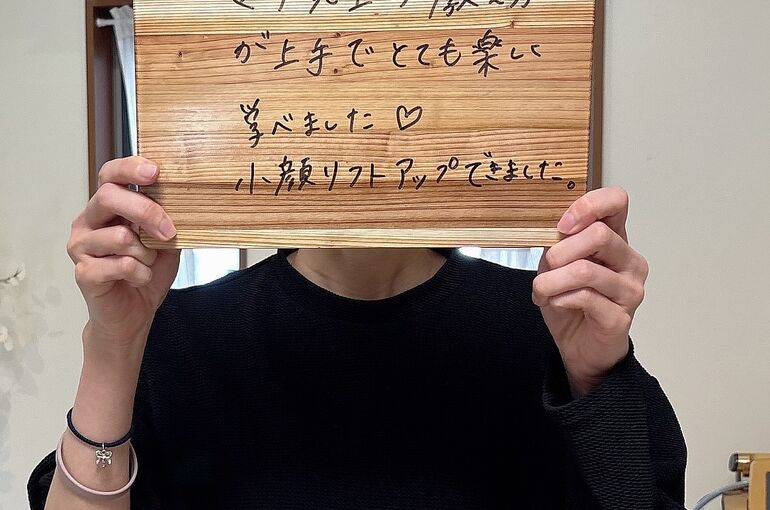 先生の教え方
が上手でとても楽しく
学べました♡
小顔リフトアップできました。